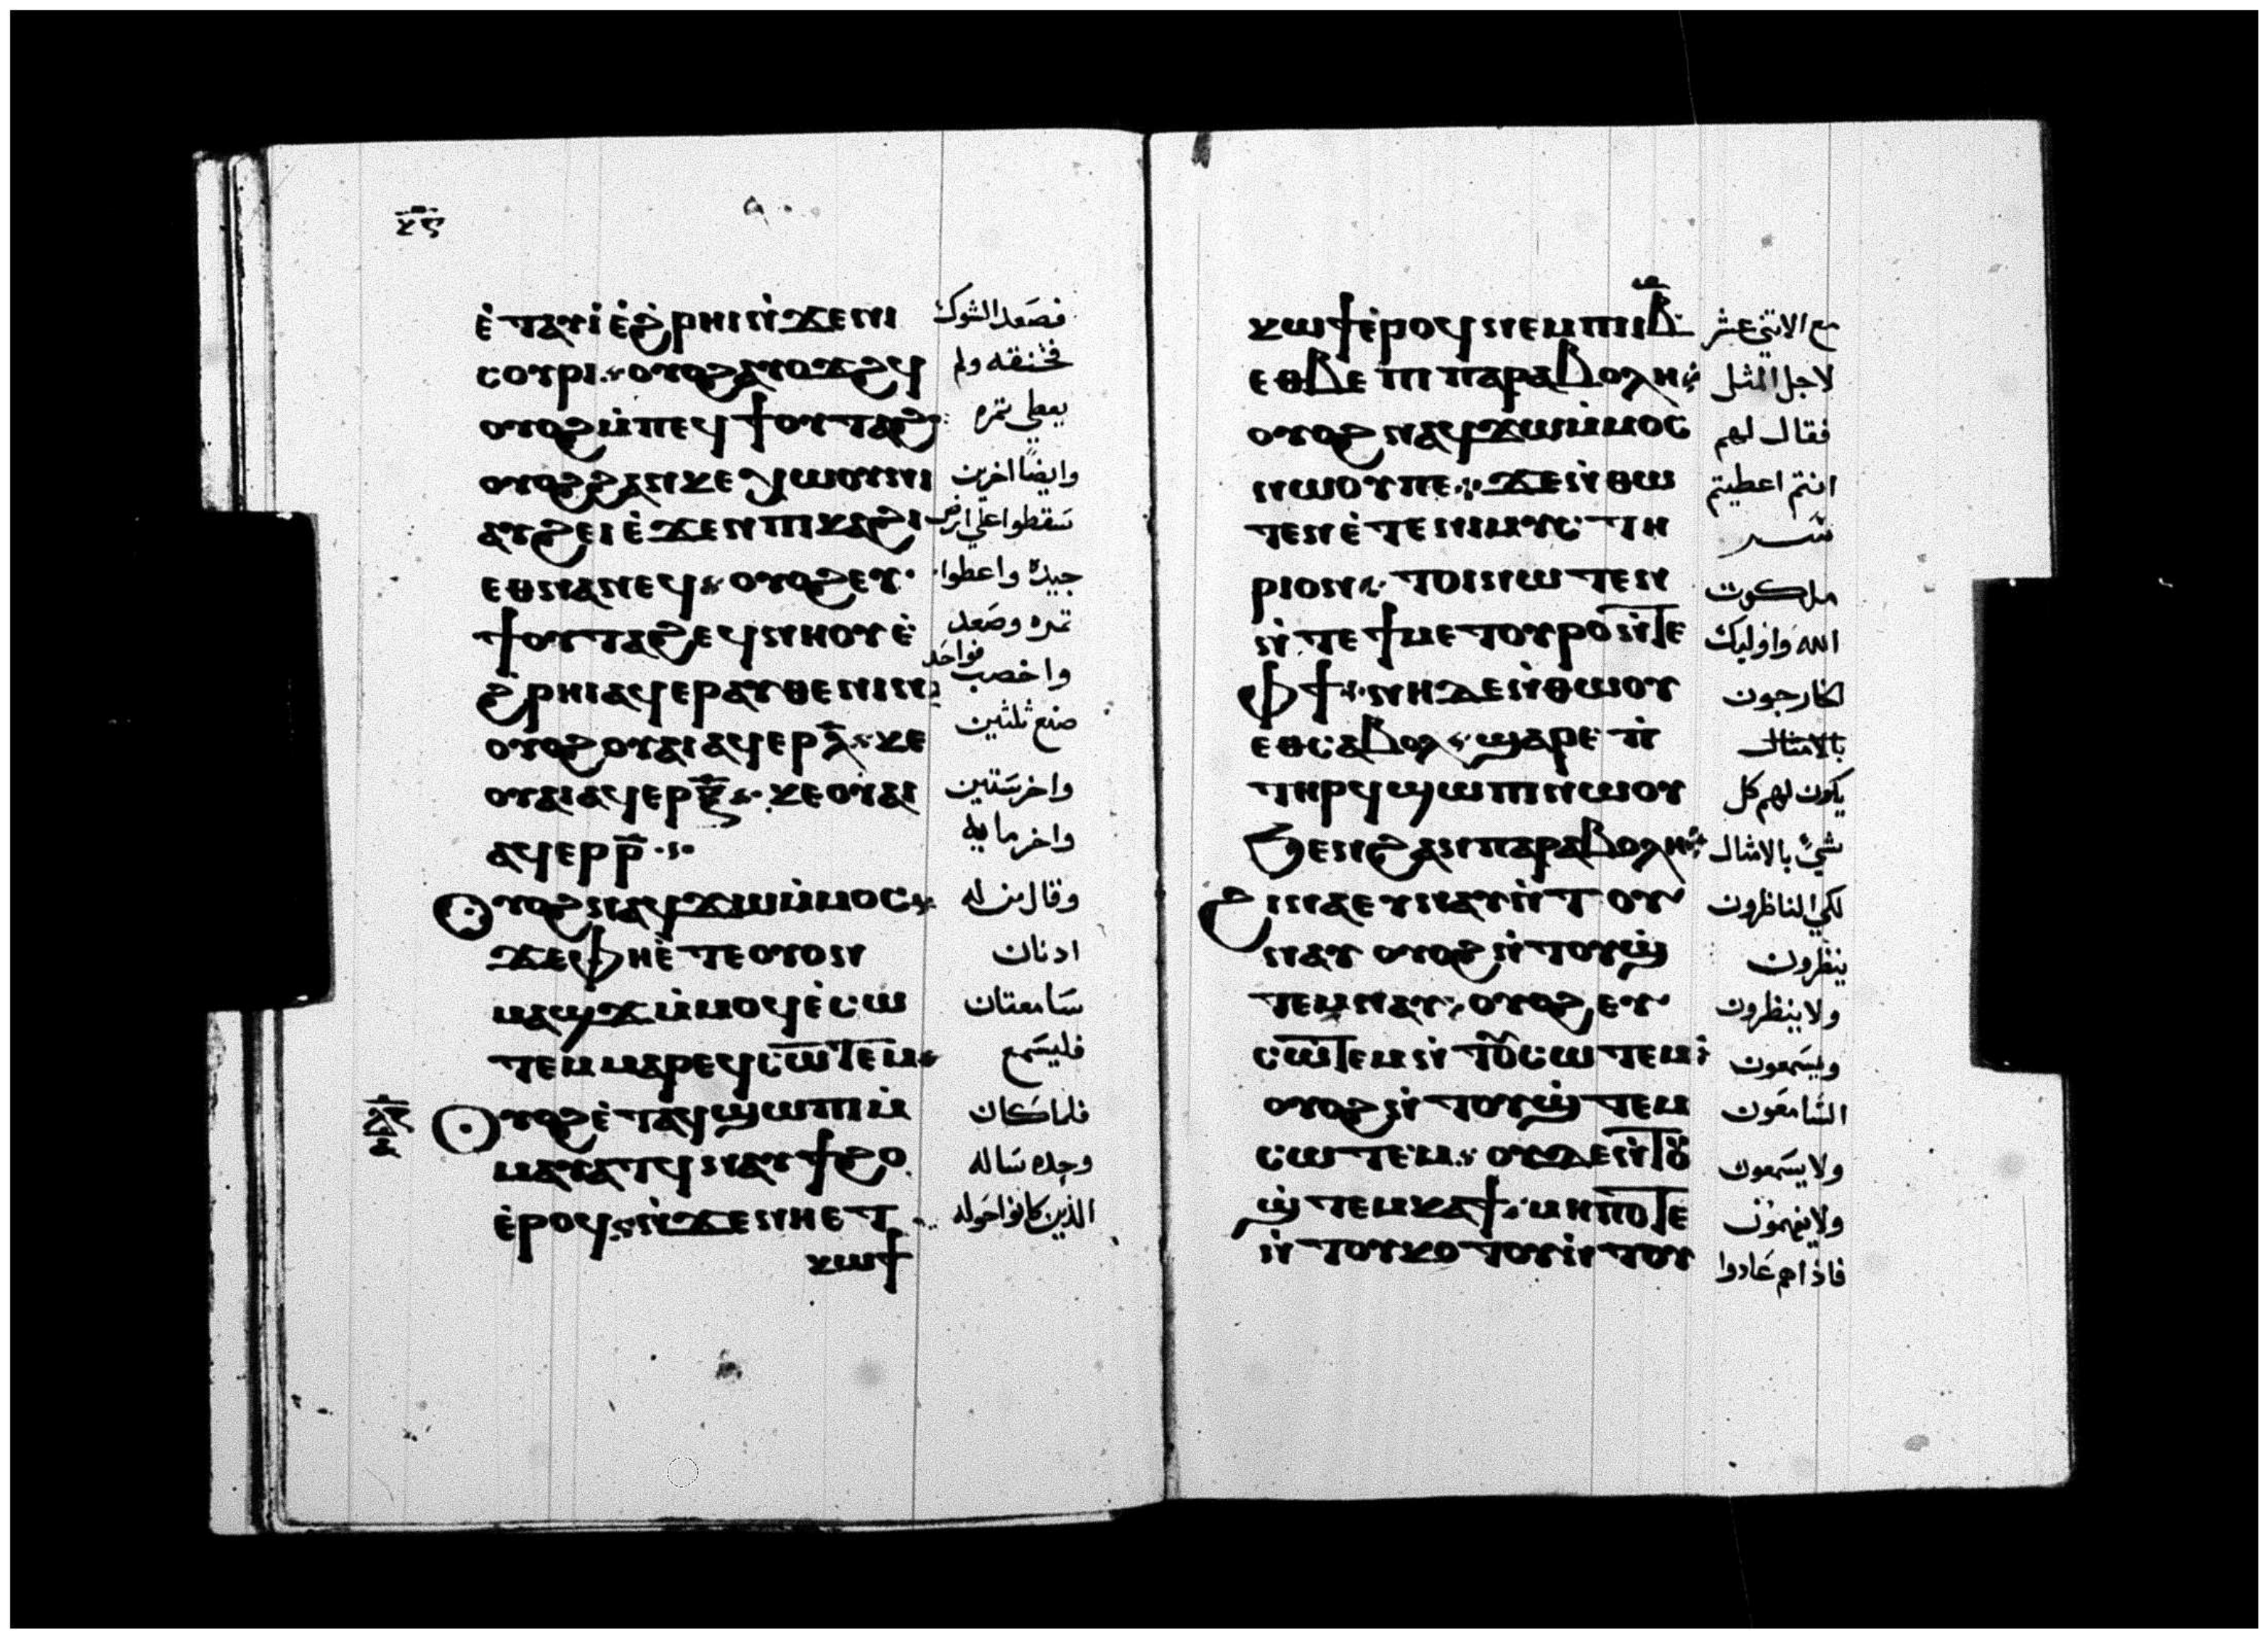 ⲕ̅ⲋ̅
ⲉ̇ⲧⲁⲩⲓ̇ ⲉ̇ϩ̇ⲣⲏⲓ ⲛ̇ϫⲉⲛⲓ فصَعد الشوك
ⲥⲟⲩⲣⲓ ⲟⲩⲟϩ ⲁⲩⲟϫϩϥ فخنقه ولم
ⲟⲩⲟϩ ⲙ̇ⲡⲉϥϯⲟⲩⲧⲁϩ يعطى ثمره
ⲟⲩⲟϩ ϩⲁⲛⲕⲉⲭⲱⲟⲩⲛⲓ وايضًا اخرين
ⲁⲩϩⲉⲓ ⲉ̇ϫⲉⲛ ⲡⲓⲕⲁϩⲓ سَقطوا علي ارض
ⲉⲑⲛⲁⲛⲉϥ ⲟⲩⲟϩ ⲉⲩ جيدة واعطوا
ϯⲟⲩⲧⲁϩ ⲉϥⲛⲏⲟⲩ ⲉ̇ ثمره وصَعد
ϩ̇ⲣⲏⲓ ⲁϥⲉⲣⲁⲩⲑⲉⲛⲓⲛ واخصب فواحَد
ⲟⲩⲟϩ ⲟⲩⲁⲓ ⲁϥⲉⲣⲗ̅ ⲕⲉ صنع ثلثين
ⲟⲩⲁⲓ ⲁϥⲉⲣⲝ̅ ⲕⲉⲟⲩⲁⲓ واخر سَتين
ⲁϥⲉⲣⲣ̅ واخر مايه
ⲟⲩⲟϩ ⲛⲁϥϫⲱ ⲙ̇ⲙⲟⲥ وقال من له
ϫⲉ ⲫⲏⲉ̇ⲧⲉ ⲟⲩⲟⲛ ادنان
ⲙⲁϣϫ ⲙ̇ⲙⲟϥ ⲉ̇ⲥⲱ سَامعتان
ⲧⲉⲙ ⲙⲁⲣⲉϥⲥⲱⲧⲉⲙ فليسَمع
ⲟⲩⲟϩ ⲉ̇ⲧⲁϥϣⲱⲡⲓ ⲙ̇ فلما كان
ⲙⲁⲩⲁⲧϥ ⲛⲁⲩϯϩⲟ وحده سَاله
ⲉ̇ⲣⲟϥ ⲛ̇ϫⲉ ⲛⲏⲉⲧ الذين كانوا حَوله
ⲕⲱϯ
ⲕⲱϯ ⲉ̇ⲣⲟϥ ⲛⲉⲙ ⲡⲓⲓ̅ⲃ̅ مع الاثنى عشر
ⲉⲑⲃⲉ ⲡⲓⲡⲁⲣⲁⲃⲟⲗⲏ لاجل المثل
ⲟⲩⲟϩ ⲛⲁϥϫⲱ ⲙ̇ⲙⲟⲥ فقال لهم
ⲛⲱⲟⲩ ⲡⲉ ϫⲉ ⲛ̇ⲑⲱ انتم اعطيتم
ⲧⲉⲛ ⲉ̇ⲧⲉ ⲛⲓⲙⲩⲥⲧⲏ سَر
ⲣⲓⲟⲛ ⲧⲟⲓ ⲛⲱⲧⲉⲛ ملكوت
ⲛ̇ⲧⲉ ϯⲙⲉⲧⲟⲩⲣⲟ ⲛ̇ⲧⲉ الله واوليك
ⲫϯ ⲛⲏ ⲇⲉ ⲛ̇ⲑⲱⲟⲩ الخارجون
ⲉⲑⲥⲁⲃⲟⲗ ϣⲁⲣⲉ ⲡ̇ بالامثال
ⲧⲏⲣϥ ϣⲱⲡⲓ ⲛⲱⲟⲩ يكون لهم كل
ϧⲉⲛ ϩⲁⲛⲡⲁⲣⲁⲃⲟⲗⲏ شيء بالامثال
ϩⲓⲛⲁ ⲉⲩⲛⲁⲩ ⲛ̇ⲧⲟⲩ لكي الناظرون
ⲛⲁⲩ ⲟⲩⲟϩ ⲛ̇ⲧⲟⲩϣ̇ ينظرون
ⲧⲉⲙⲛⲁⲩ ⲟⲩⲟϩ ⲉⲩ ولا ينظرون
ⲥⲱⲧⲉⲙ ⲛ̇ⲧⲟⲩⲥⲱⲧⲉⲙ ويسَمعون
ⲟⲩⲟϩ ⲛ̇ⲧⲟⲩϣ̇ⲧⲉⲙ السَامعَون
ⲥⲱⲧⲉⲙ ⲟⲩⲇⲉ ⲛ̇ⲧⲟⲩ ولا يسَمعون
ϣ̇ⲧⲉⲙⲕⲁϯ ⲙⲏⲡⲟⲧⲉ ولا يفهمون
ⲛ̇ⲧⲟⲩⲕⲟⲧⲟⲩ ⲛ̇ⲧⲟⲩ فاذا هم عَادوا